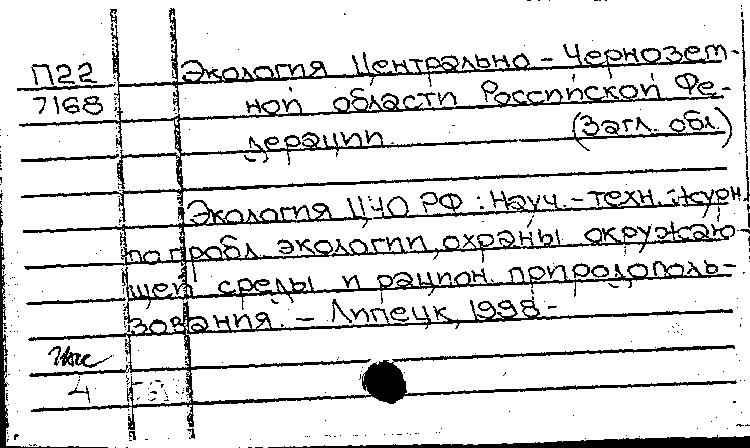 П22 Экология Центрально-Чернозем-
7168 ной области Российской Фе-
дерации. (Загл. обл.)
Экология ЦЧО РФ : Науч.-техн. журн.
по пробл. экологии, охраны окружаю-
щей среды и рацион. природополь-
зования. – Липецк, 1998 -
4